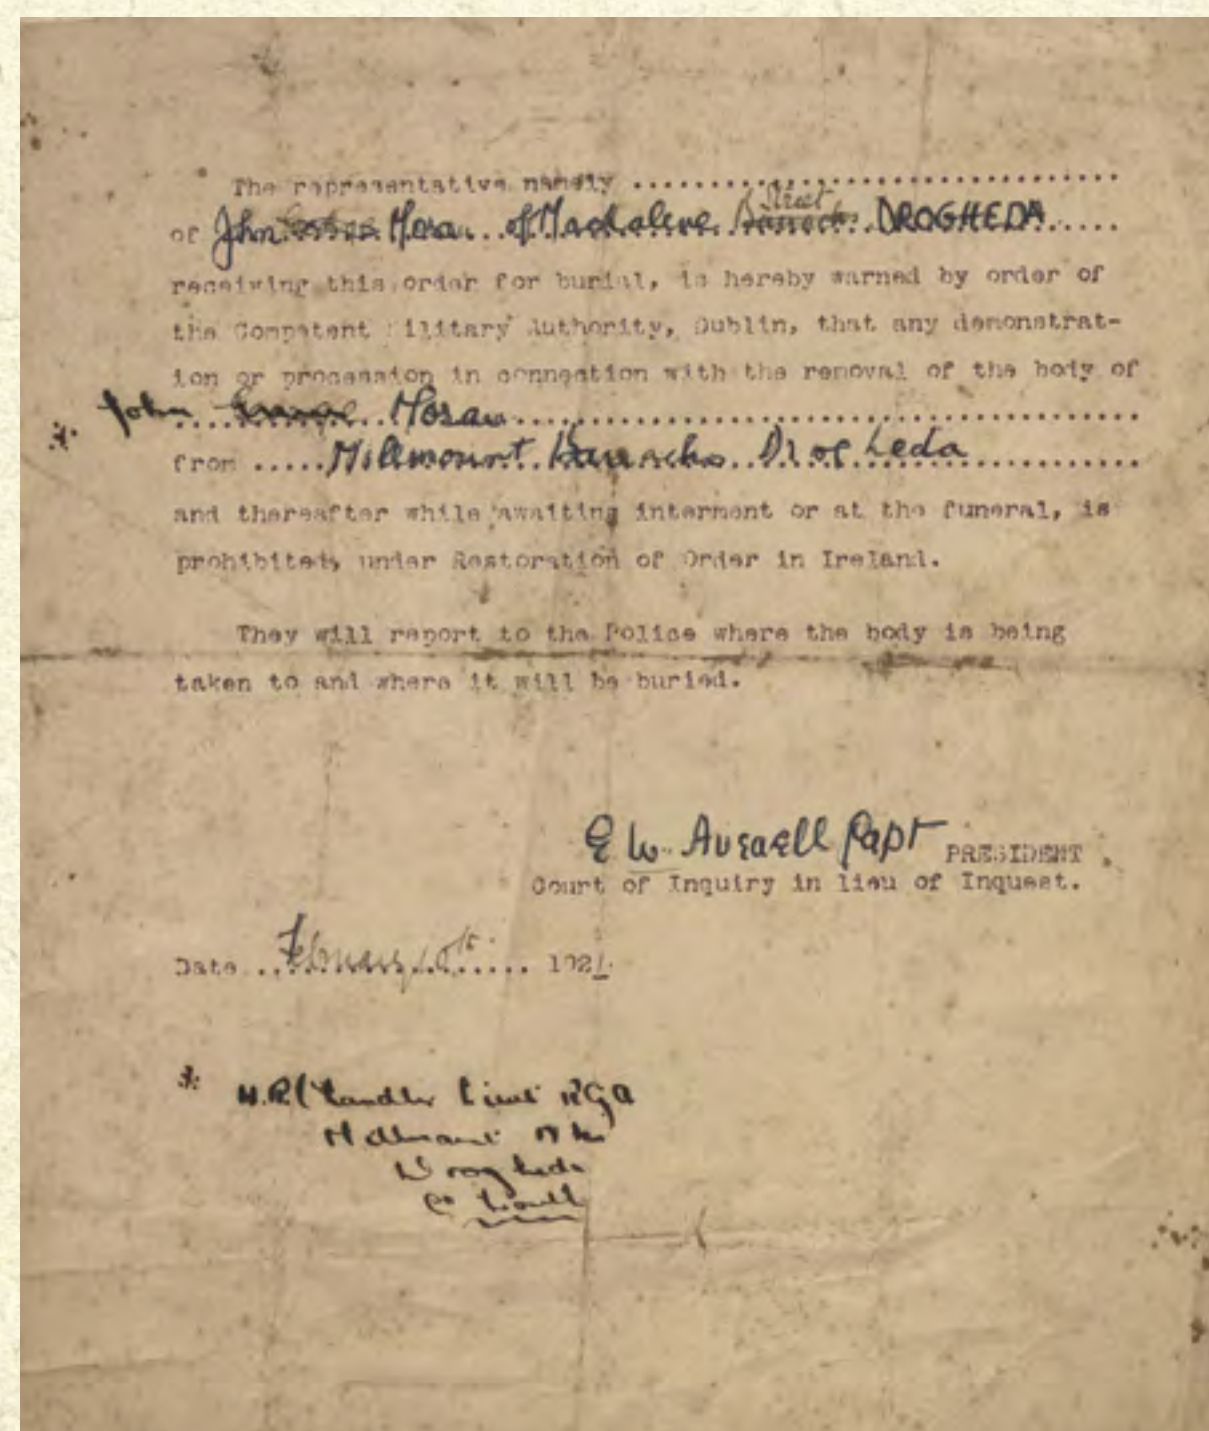 The representative namely ..................................
Street
of John Moran of Magdalene DROGHEDA.....
receiving this order for burial, is hereby warned by order of
the Competent Military Authority, Dublin, that any demonstrat-
ion or procession in connection with the removal of the body of
John Moran
from ..... Millmount Barracks Drogheda
and thereafter while awaiting interment or at the funeral, is
prohibited, under Restoration of Order in Ireland.
They will report to the Police where the body is being
taken to and where it will be buried.
E W. Capt PRESIDENT
Court of Inquiry in lieu of Inquest.
Date ... February 10th ..... 1921.
* H.R Chandler Lieut RGA
Millmount Bks
Drogheda
Co Louth